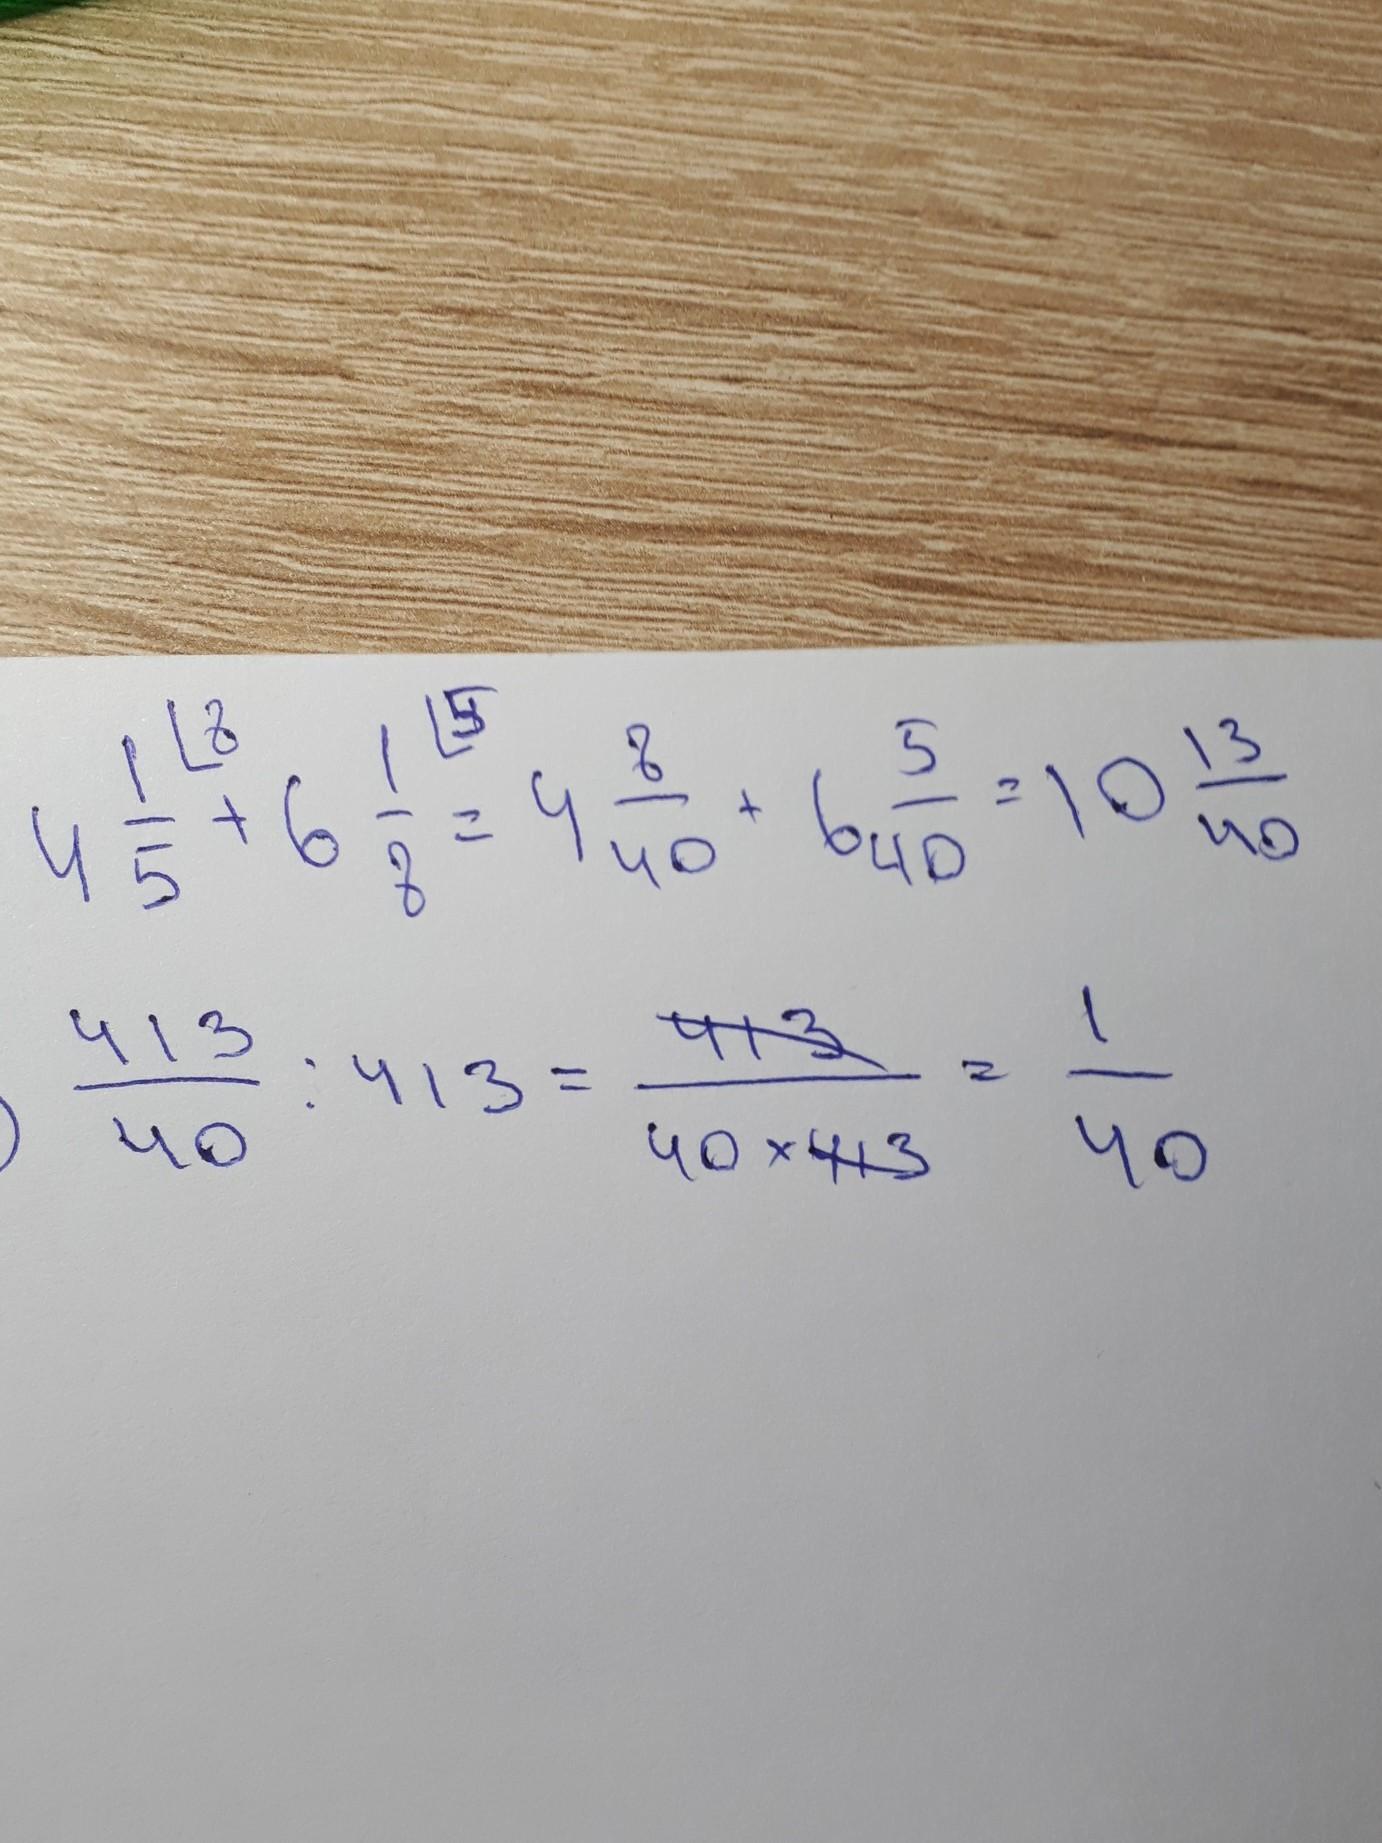 4 1/5 ⌊8 + 6 1/8 ⌊5 = 4 8/40 + 6 5/40 = 10 13/40
) 413/40 : 413 = 413/40×413 = 1/40